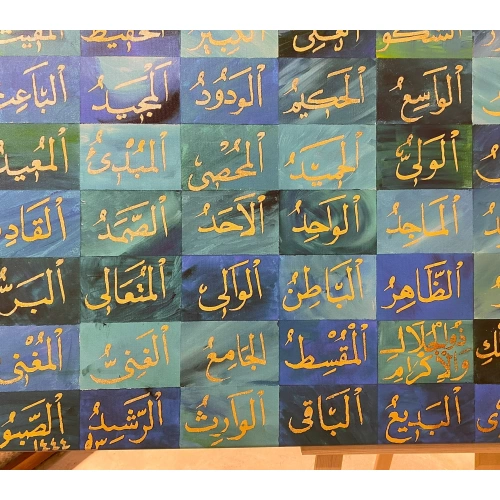 الواسع الحكيم الودود المجيد الباعث
الولي الحميد المحصي المبدئ المعيد
الماجد الواحد الاحد الصمد القادر
الظاهر الباطن الوالي المتعالي البر
ذو الجلال والإكرام المقسط الجامع الغني المغني
البديع الباقي الوارث الرشيد الصبور
٩٣ ١٤٤٤